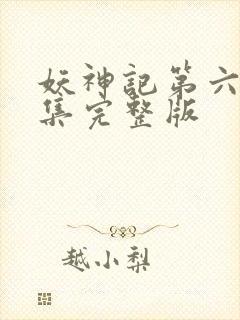 妖神記第六
集完整版
越小梨